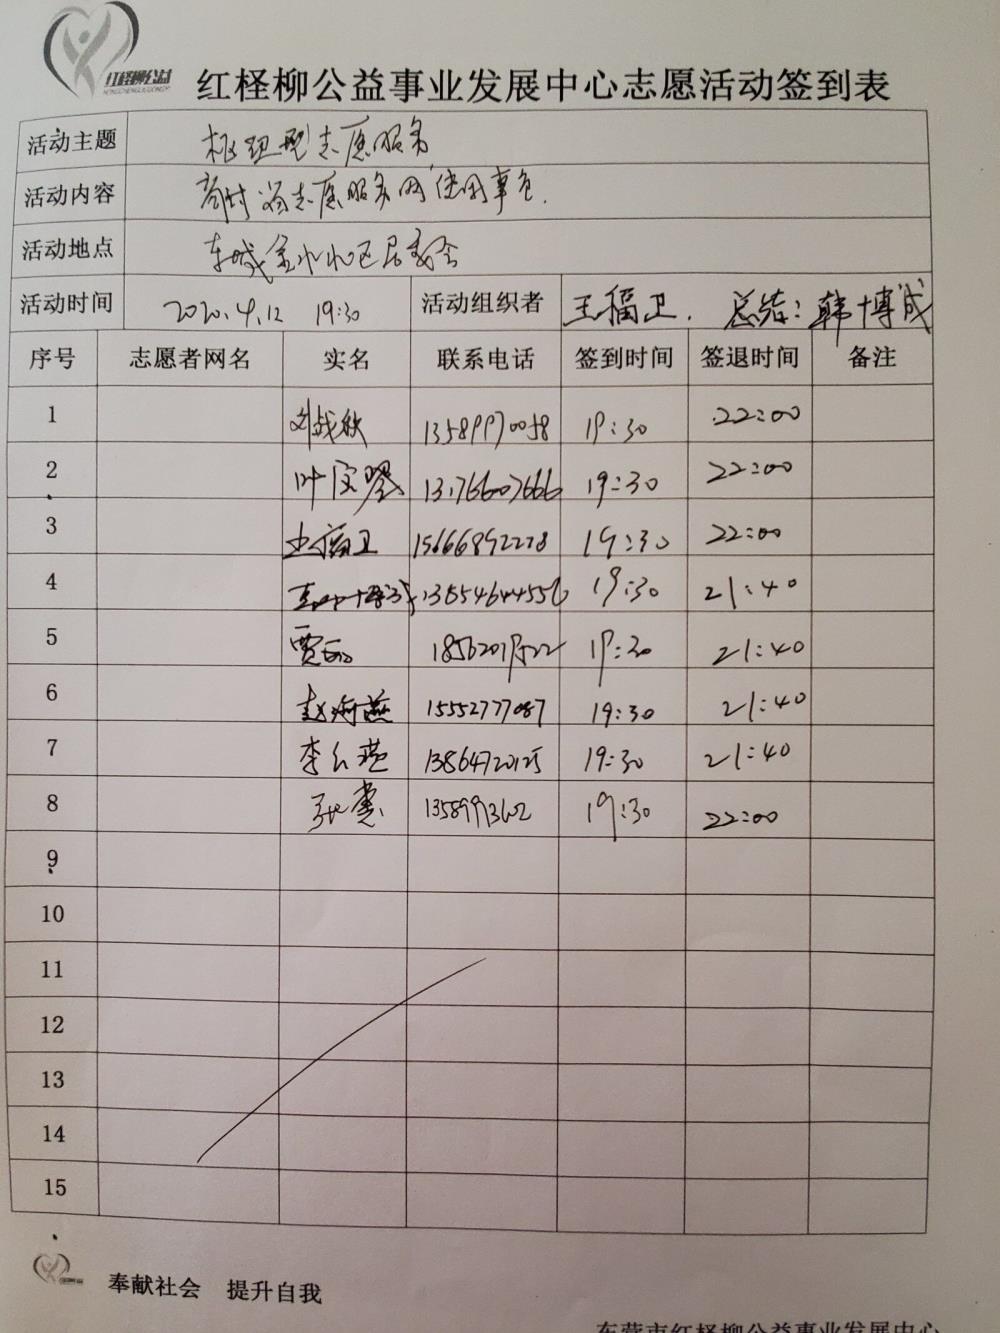 红柽柳公益
红柽柳公益事业发展中心志愿活动签到表
活动主题 枢纽型志愿服务
活动内容 志愿服务网使用事宜.
活动地点 东城金水小区居委会
活动时间 2020.4.12 19:30 活动组织者 王福卫. 总结:韩博成
序号 志愿者网名 实名 联系电话 签到时间 签退时间 备注
1 刘战 13589970058 19:30 22:00
2 叶 13176607666 19:30 22:00
3 王福卫 15666892278 19:30 22:00
4 韩博成 13854644556 19:30 21:40
5 贾 19:30 21:40
6 赵海燕 15552777087 19:30 21:40
7 李 燕 13864720125 19:30 21:40
8 张 19:30 22:00
9
10
11
12
13
14
15
奉献社会 提升自我
东营市红柽柳公益事业发展中心